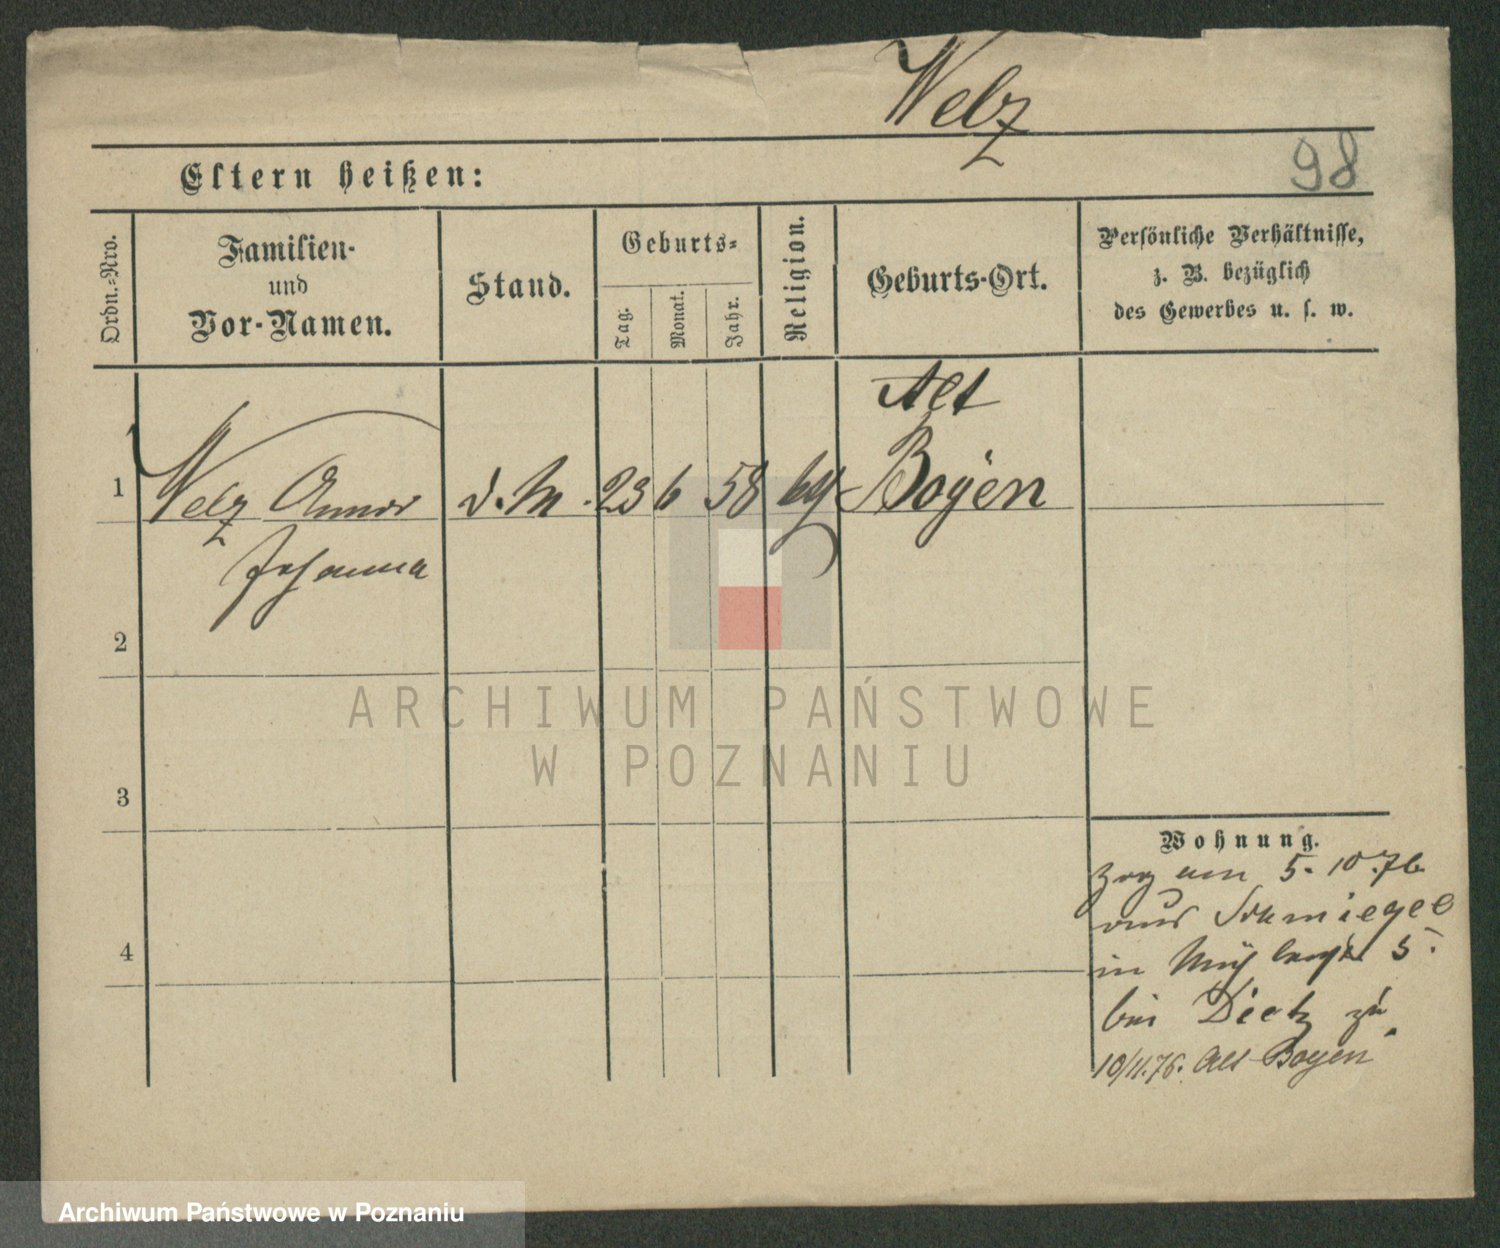 Welz
98
Eltern heißen:
Ordn.-Nro.
Familien-
und
Vor-Namen.
Stand.
Geburts-
Tag.
Monat.
Jahr.
Religion.
Geburts-Ort.
Persönliche Verhältnisse,
z. B. bezüglich
des Gewerbes u. s. w.
Alt
1 Welz Anna d. M. 23 6 58 Boyen
Johanna
2
ARCHIWUM PAŃSTWOWE
W POZNANIU
3
Wohnung.
zog am 5. 10. 76
aus Schmiegel
4
in 5.
bei Dietz zu.
10/11.76. Alt Boyen
Archiwum Państwowe w Poznaniu